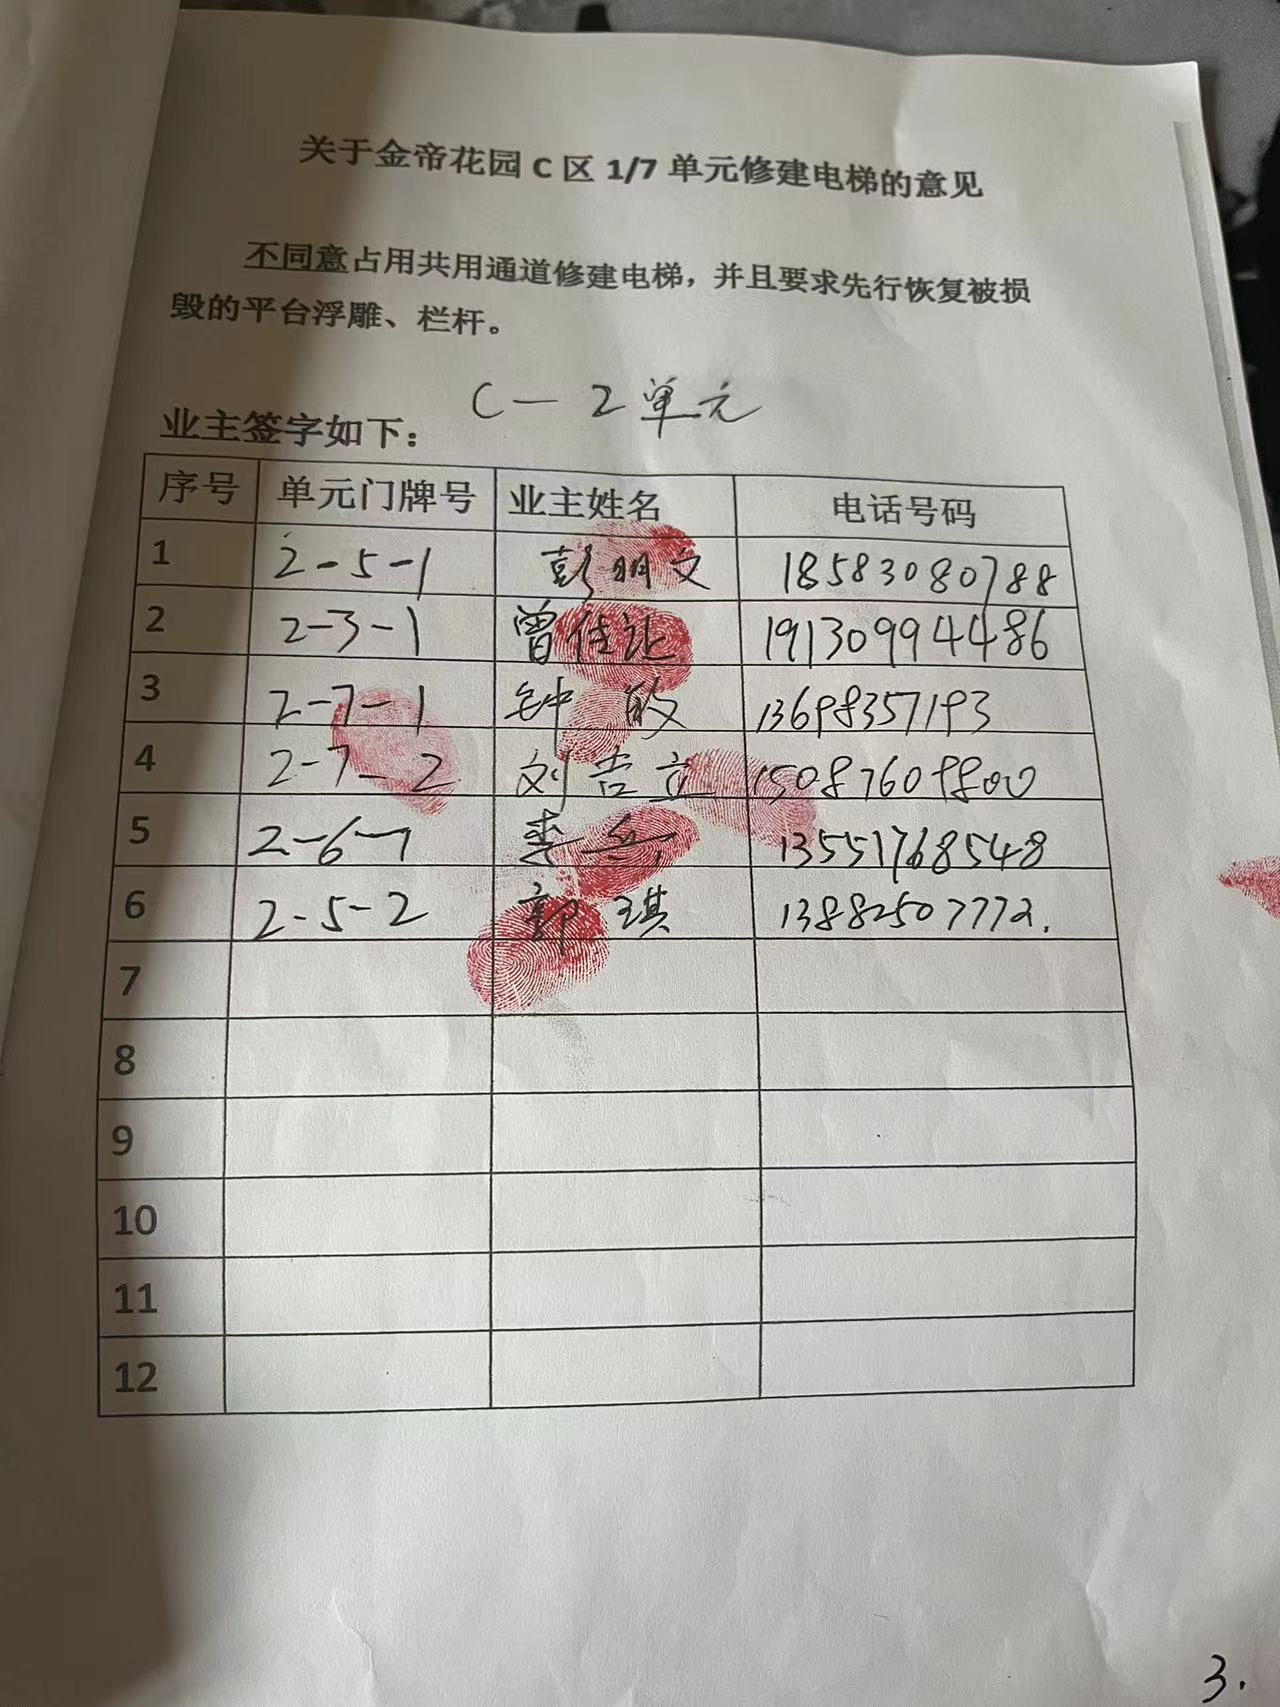 关于金帝花园 C 区 1/7 单元修建电梯的意见
不同意占用共用通道修建电梯，并且要求先行恢复被损
毁的平台浮雕、栏杆。
C-2单元
业主签字如下：
序号 单元门牌号 业主姓名 电话号码
1 2-5-1 彭明文 18583080788
2 2-3-1 曾佳 19130994486
3 2-7-1 钟 13698357193
4 2-7-2 刘吉立 15087609800
5 2-6-1 李 13551768548
6 2-5-2 郭琪 13882507772.
7
8
9
10
11
12
3.